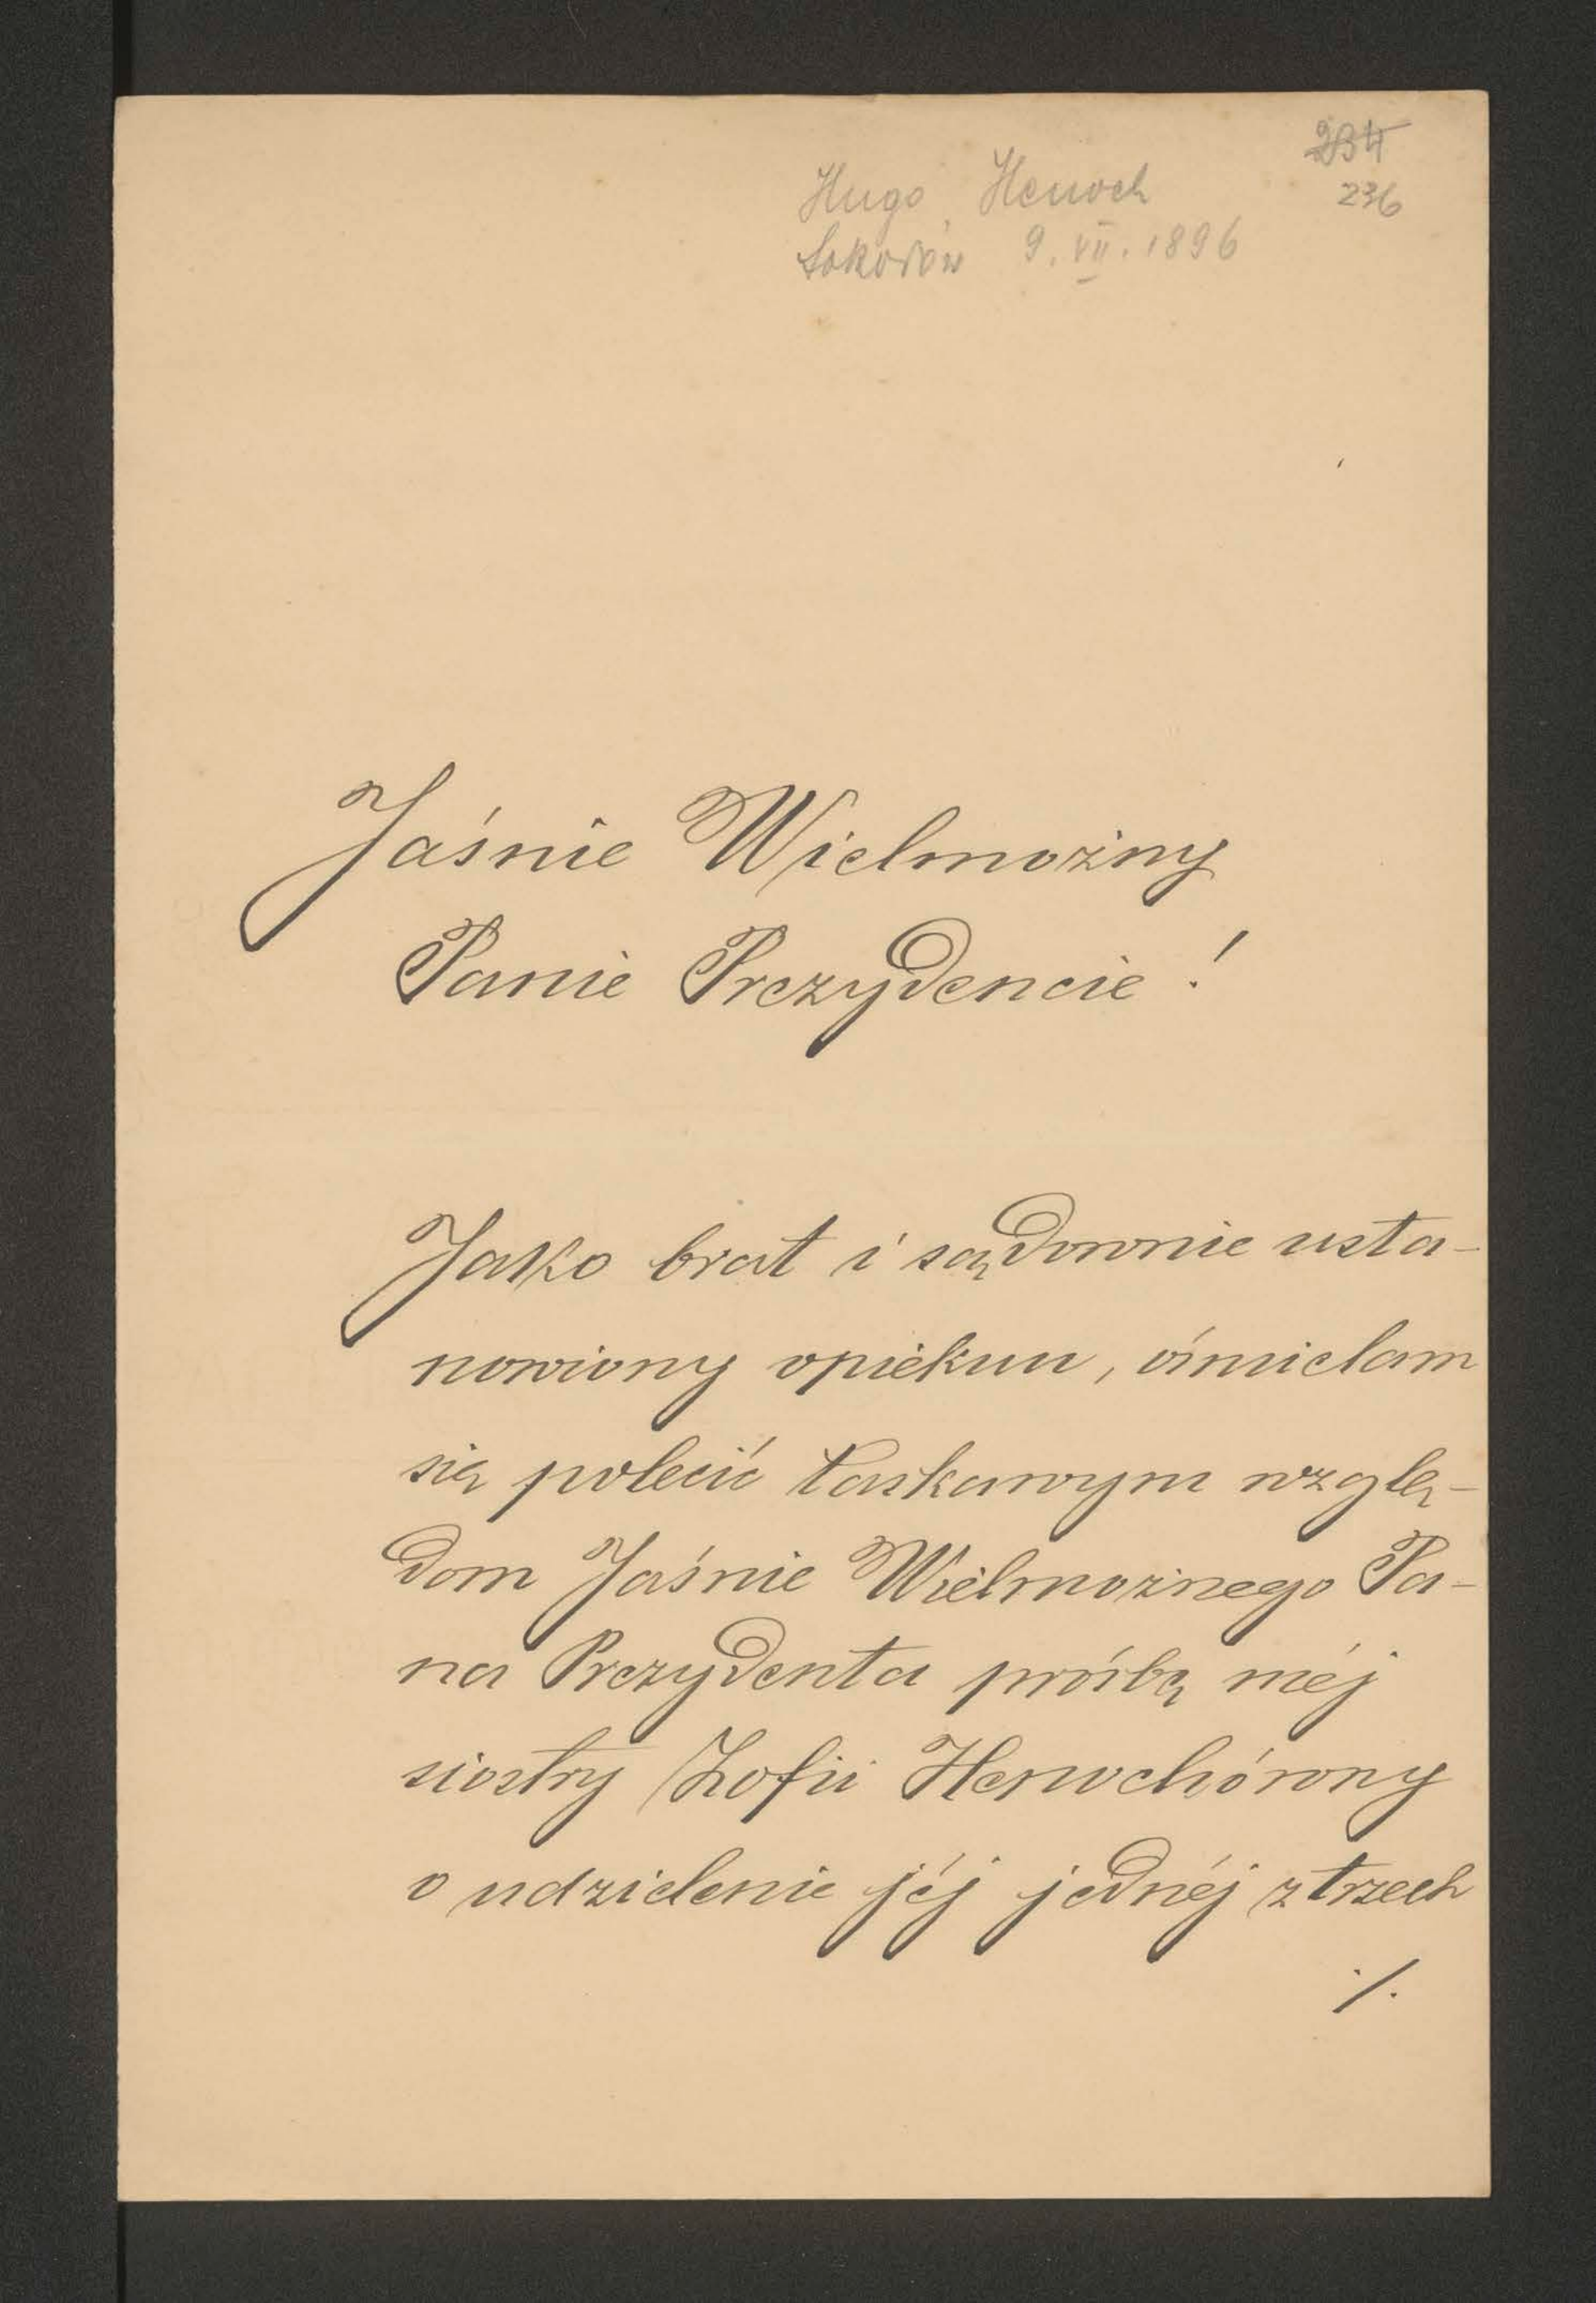 234
236
Hugo Henoch
Sokołów 9. VII. 1896
Jaśnie Wielmożny
Panie Prezydencie!
Jako brat i sądownie usta-
nowiony opiekun, ośmielam
się polecić łaskawym wzglę-
dom Jaśnie Wielmożnego Pa-
na Prezydenta prośbę méj
siostry Zofii Henochówny
o udzielenie jéj jednéj z trzech
./.